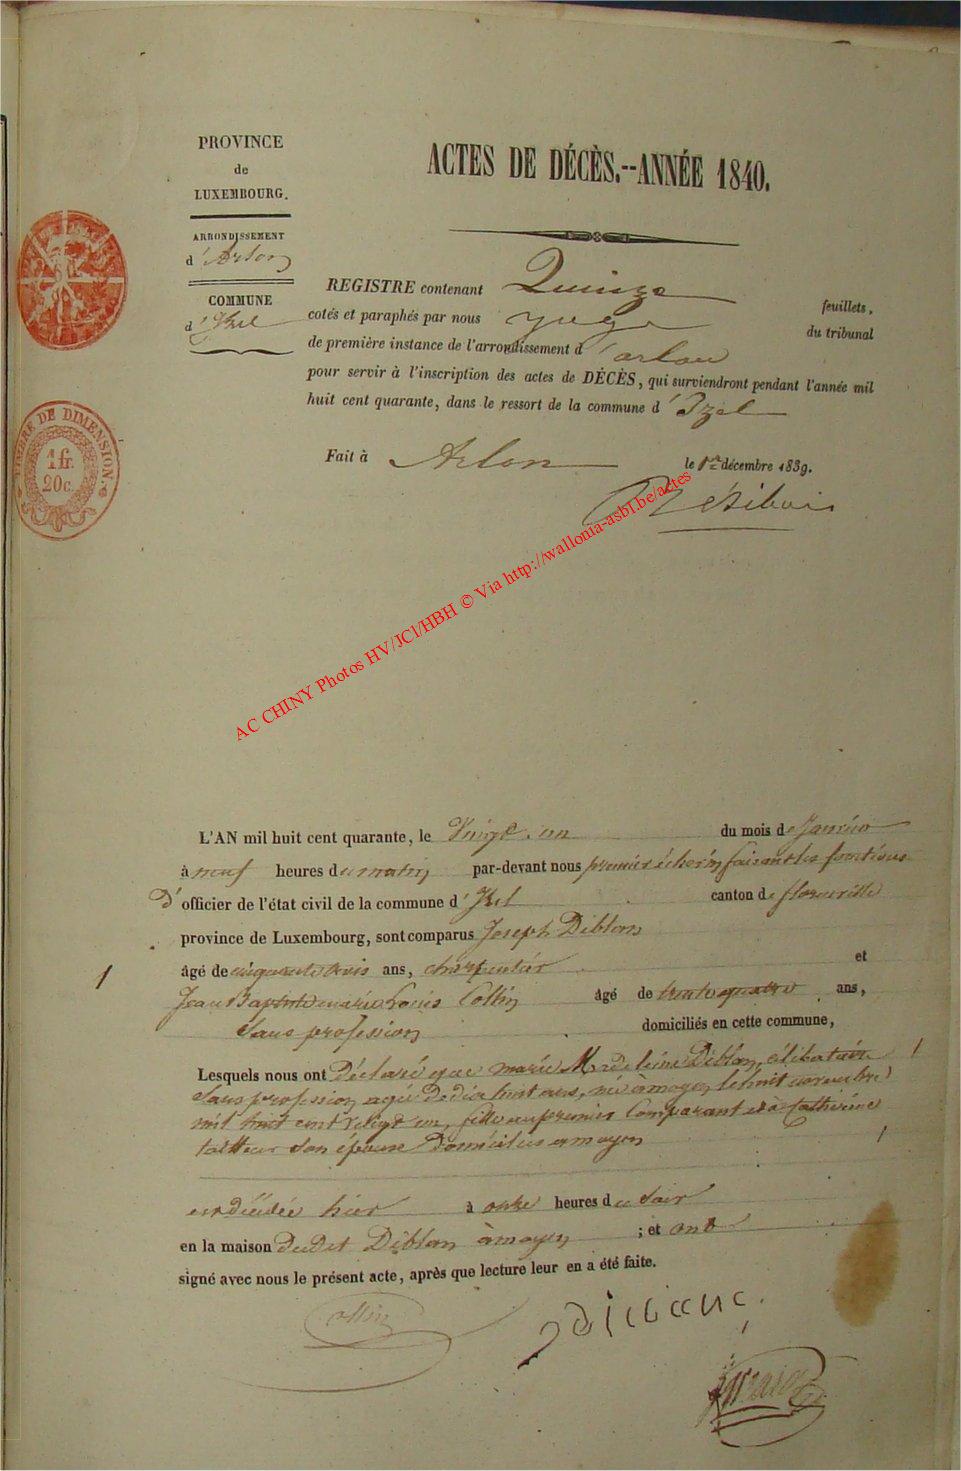 PROVINCE
de
LUXEMBOURG.
ARRONDISSEMENT
d'Arlon
COMMUNE
d'Izel
ACTES DE DÉCÈS.--ANNÉE 1840.
REGISTRE contenant Quinze feuillets,
cotés et paraphés par nous juge du tribunal
de première instance de l'arrondissement d'arlon
pour servir à l'inscription des actes de DÉCÈS, qui surviendront pendant l'année mil
huit cent quarante, dans le ressort de la commune d'Izel
Fait à Arlon le 1er décembre 1839.
TIMBRE DE DIMENSION.
1 fr.
20 c.
AC CHINY Photos HV/JCl/HBH © Via http://wallonia-asbl.be/actes
1
L'AN mil huit cent quarante, le Vingt un du mois de Janvier
à neuf heures du matin par-devant nous premier échevin faisant les fonctions
D'officier de l'état civil de la commune d'Izel canton de florenville
province de Luxembourg, sont comparus Joseph Diblan
âgé de cinquante trois ans, charpentier et
Jean Baptiste marie Louis Collin âgé de trente quatre ans,
Sans profession domiciliés en cette commune,
Lesquels nous ont Déclaré que marie Madeleine Diblan, célibataire
Sans profession agée de dix huit ans, née à moyen le huit novembre
mil huit cent vingt un, fille au premier Comparant et à Catherine
son épouse Domiciliés à moyen
est décédée hier à onze heures du Soir
en la maison dudit Diblan à moyen ; et ont
signé avec nous le présent acte, après que lecture leur en a été faite.
Collin